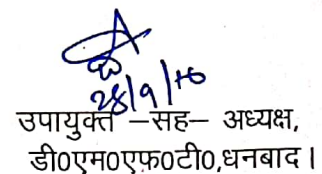 28/9/16
उपायुक्त –सह– अध्यक्ष,
डी0एम0एफ0टी0,धनबाद।